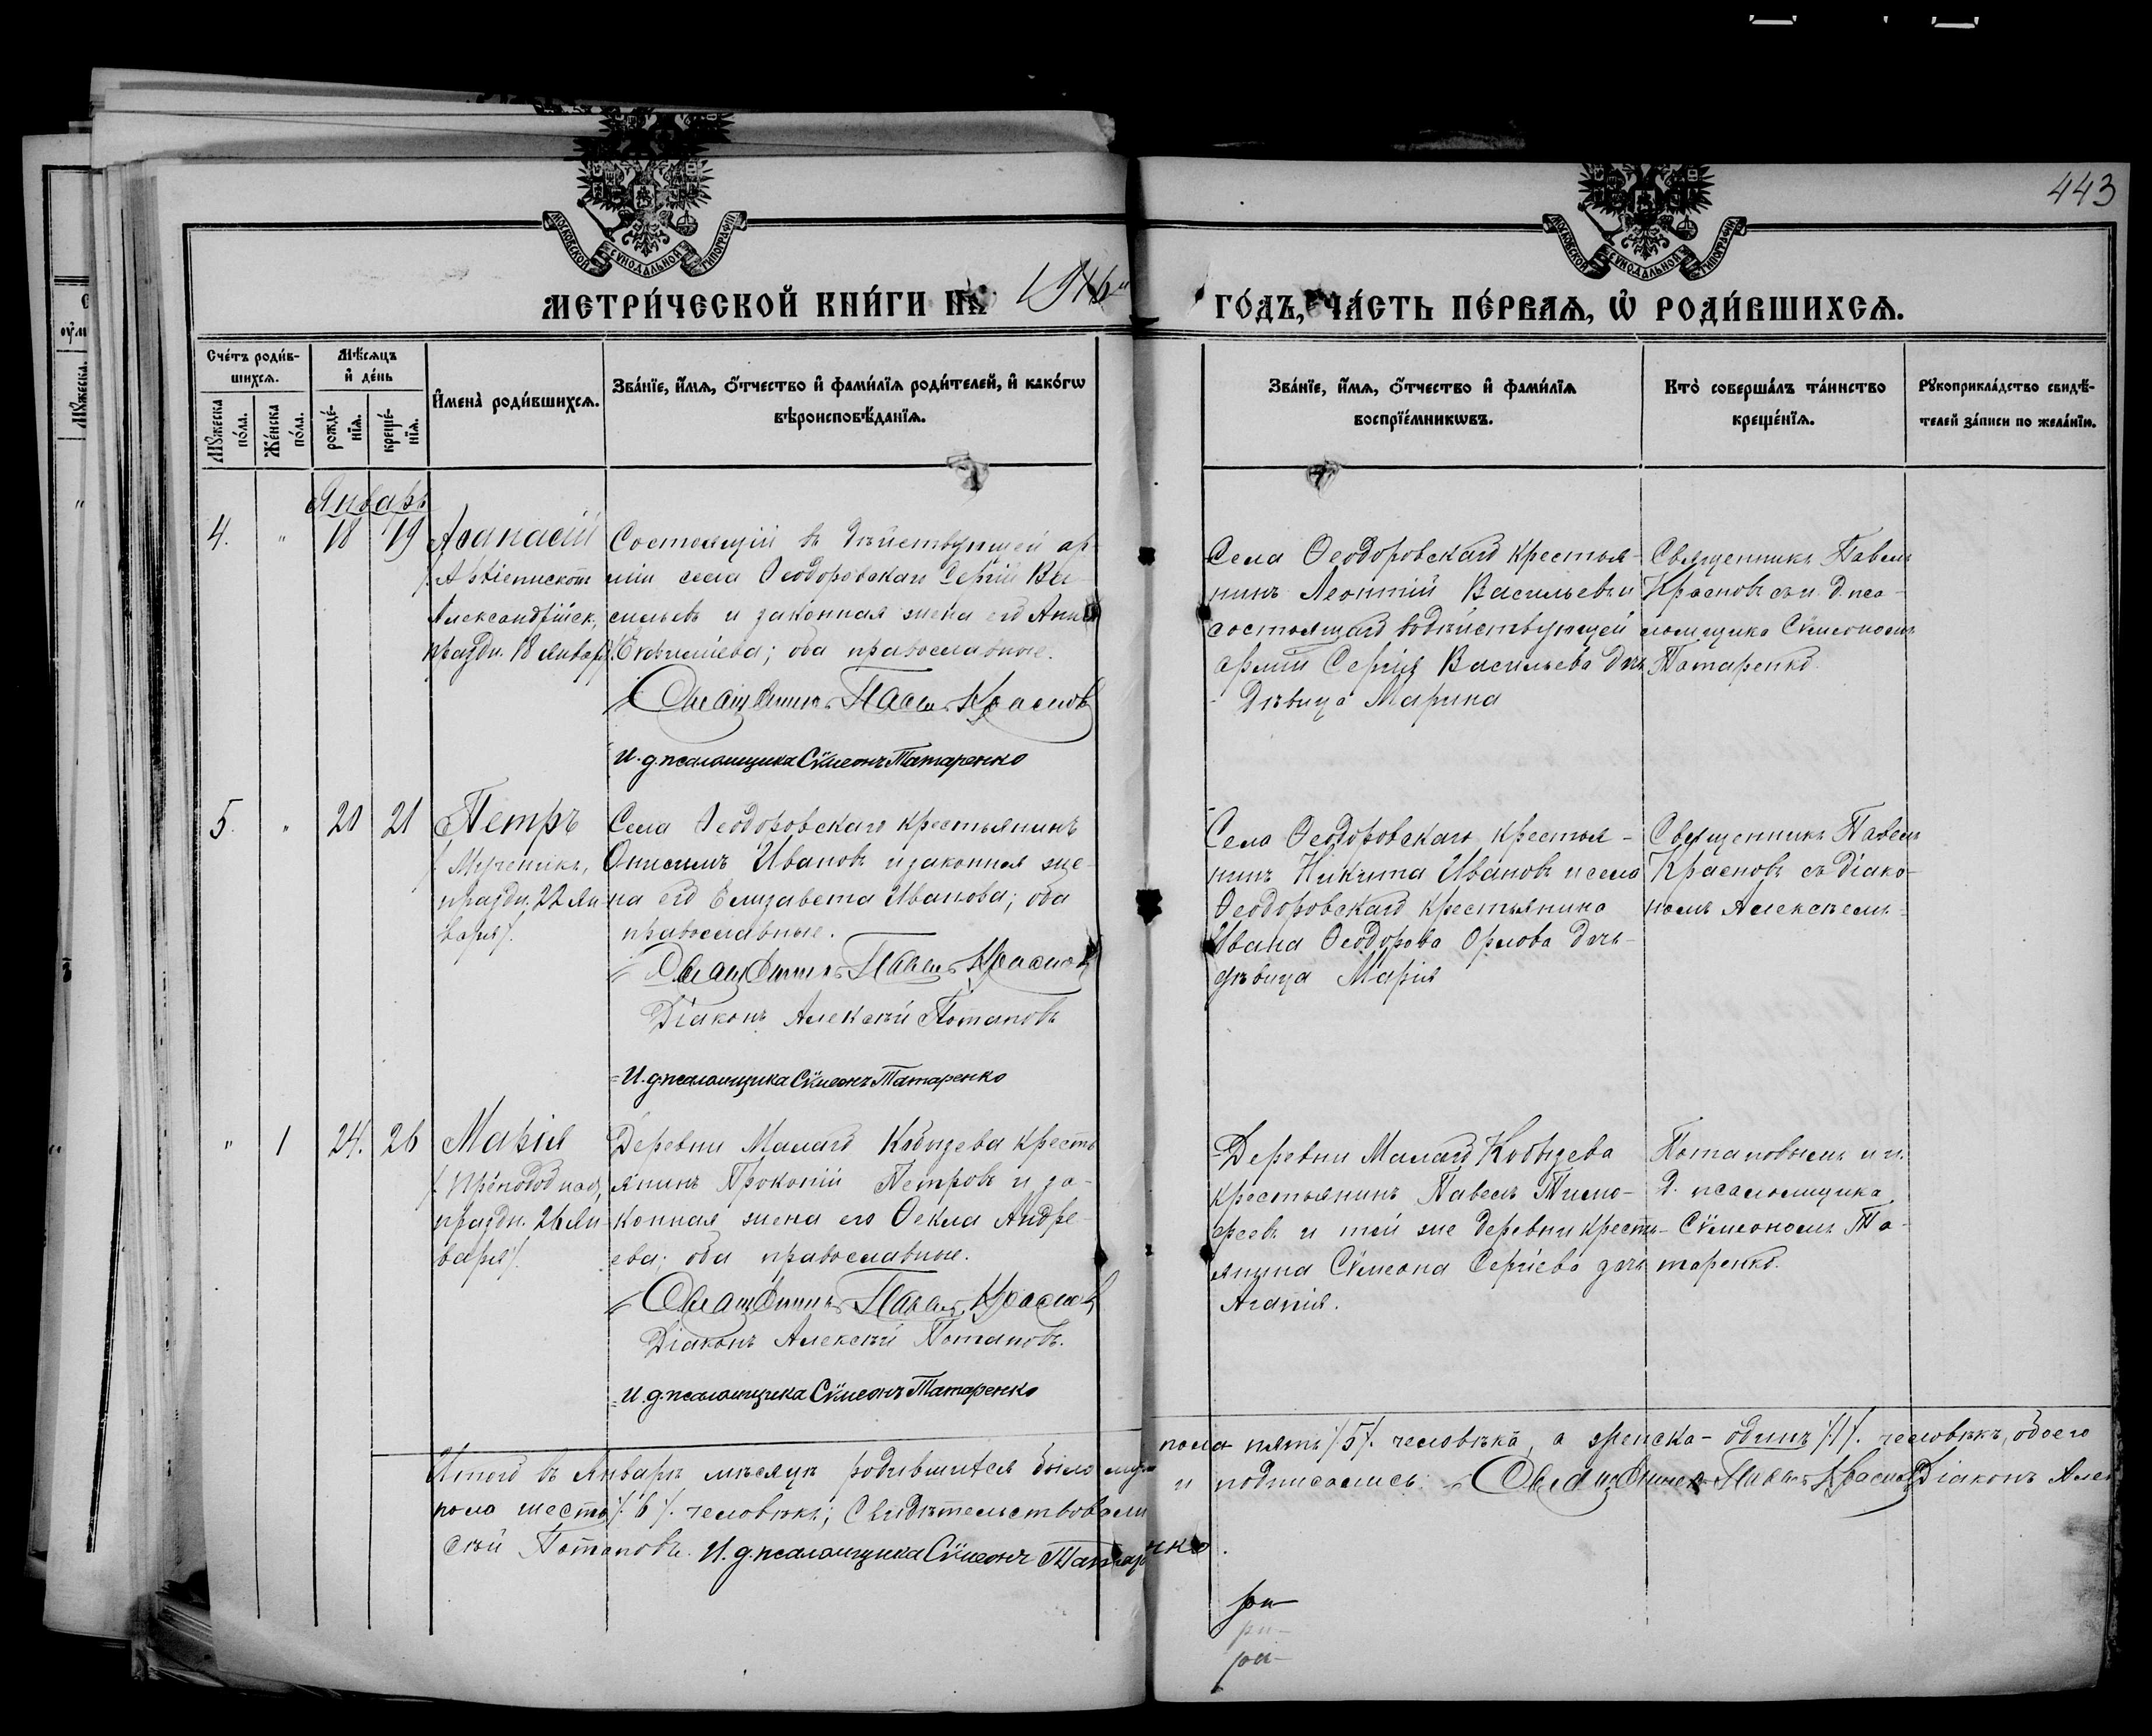 443
МОСКОВСКОЙ СѴНОДАЛЬНОЙ ТИПОГРАФІИ
МОСКОВСКОЙ СѴНОДАЛЬНОЙ ТИПОГРАФІИ
МЕТРИ́ЧЕСКОЙ КНИ́ГИ НА 1916й ГО́ДЪ, ЧА́СТЬ ПЕ́РВАѦ, Ѡ҆ РОДИ́ВШИХСѦ.
Сче́тъ роди́в-
шихсѧ.
Мꙋ́жеска по́ла.
Же́нска по́ла.
Мѣ́сѧцъ
и҆ де́нь
рожде́-
нїѧ.
креще́-
нїѧ.
И҆мена̀ роди́вшихсѧ.
Зва́нїе, и҆́мѧ, ѻ҆́тчество и҆ фами́лїѧ роди́телей, и҆ како́гѡ
вѣроисповѣ́данїѧ.
Зва́нїе, и҆́мѧ, ѻ҆́тчество и҆ фами́лїѧ
воспрїе́мникѡвъ.
Кто̀ соверша́лъ та́инство
креще́нїѧ.
Рꙋкоприкла́дство свидѣ́-
телей за́писи по жела́нїю.
Январь
4. " 18 19
Аѳанасій
/Архіепископъ
Александрійск.,
праздн. 18 января/.
Состоящій въ дѣйствующей ар-
міи села Ѳеодоровскаго Сергій Ва-
сильевъ и законная жена его Анна
Евѳиміева; оба православные.
Священникъ Павелъ Красновъ
И. д. псаломщика Сѵмеонъ Татаренко
Села Ѳеодоровскаго крестья-
нинъ Леонтій Васильевъ и
состоящаго въ дѣйствующей
арміи Сергія Васильева дочь
дѣвица Марина
Священникъ Павелъ
Красновъ съ и. д. пса-
ломщика Сѵмеономъ
Татаренко.
5. " 20 21
Петръ
/Мученикъ,
праздн. 22 Ян-
варя/.
Села Ѳеодоровскаго крестьянинъ
Онисимъ Ивановъ и законная же-
на его Елизавета Иванова; оба
православные.
Священникъ Павелъ Красновъ
Діаконъ Алексѣй Потаповъ
И. д. псаломщика Сѵмеонъ Татаренко
Села Ѳеодоровскаго крестья-
нинъ Никита Ивановъ и села
Ѳеодоровскаго крестьянина
Ивана Ѳеодорова Орлова дочь
дѣвица Марія
Священникъ Павелъ
Красновъ съ діако-
номъ Алексѣемъ
" 1 24. 26
Марія
/Преподобная,
праздн. 26 Ян-
варя/.
Деревни Малаго Кобызева кресть-
янинъ Прокопій Петровъ и за-
конная жена его Ѳекла Андре-
ева; оба православные.
Священникъ Павелъ Красновъ
Діаконъ Алексѣй Потаповъ.
И. д. псаломщика Сѵмеонъ Татаренко
Деревни Малаго Кобызева
крестьянинъ Павелъ Тимо-
феевъ и той же деревни кресть-
янина Сѵмеона Сергіева дочь
Агапія.
Потаповымъ и и.
д. псаломщика
Сѵмеономъ Та-
таренко.
Итого въ Январѣ мѣсяцѣ родившихся было муж. пола пять /5/. человѣка, а женска - одинъ /1/. человѣкъ, обоего
пола шесть /6/. человѣкъ; Свидѣтельствовали и подписались: Священникъ Павелъ Красновъ Діаконъ Алек
сѣй Потаповъ. И. д. псаломщика Сѵмеонъ Татаренко.